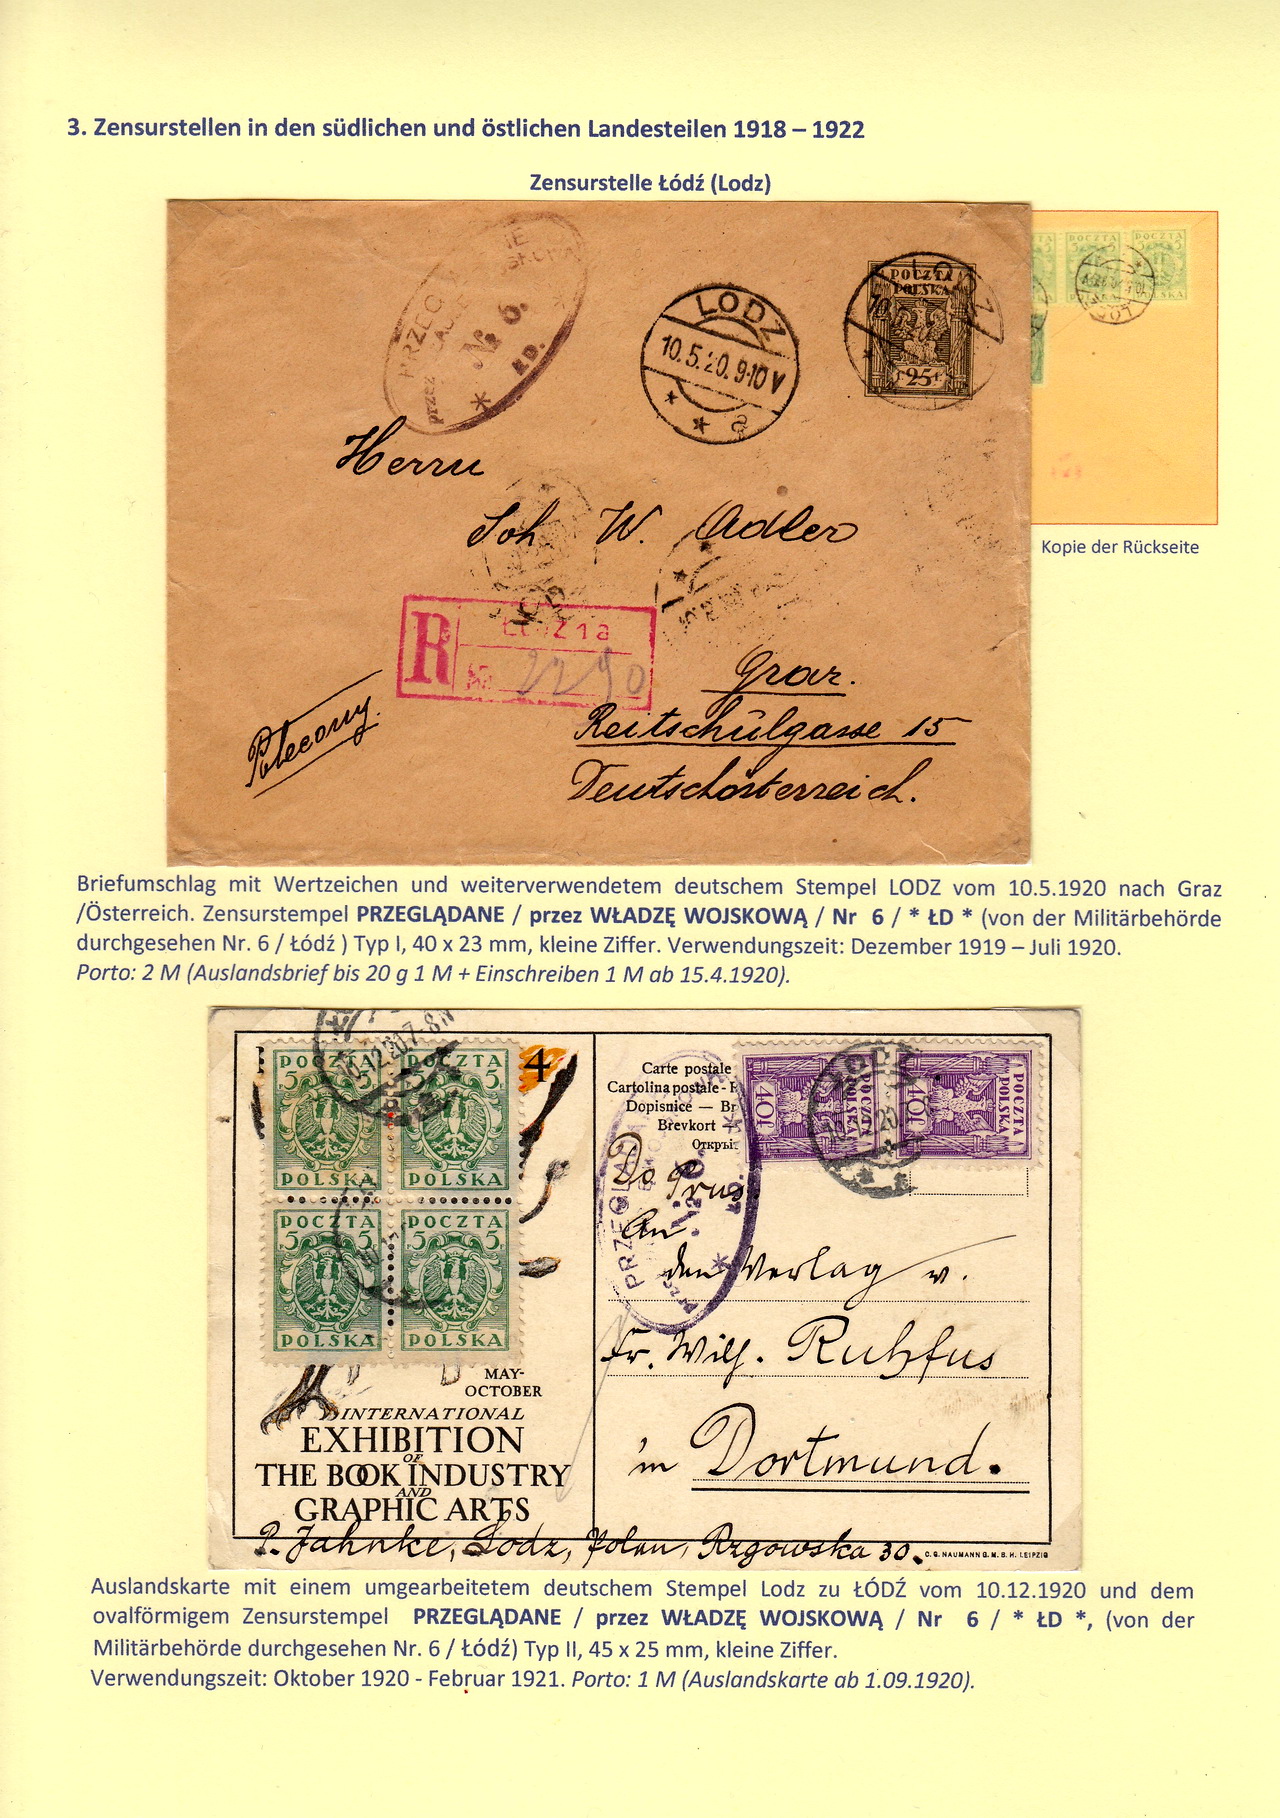 3. Zensurstellen in den südlichen und östlichen Landesteilen 1918 – 1922
Zensurstelle Łódź (Lodz)
przez
№ 6.
ŁD.
LODZ
10.5.20.9-10V
* * a
POCZTA
POLSKA
25 f
LODZ
POCZTA
5 5
POLSKA
POCZTA
5 5
POLSKA
Herrn
Joh W. Adler
R
Łódź 1 a
№ 2290
Graz.
Reitschülgasse 15
Deutschösterreich.
Polecony.
Kopie der Rückseite
Briefumschlag mit Wertzeichen und weiterverwendetem deutschem Stempel LODZ vom 10.5.1920 nach Graz
/Österreich. Zensurstempel PRZEGLĄDANE / przez WŁADZĘ WOJSKOWĄ / Nr 6 / * ŁD * (von der Militärbehörde
durchgesehen Nr. 6 / Łódź ) Typ I, 40 x 23 mm, kleine Ziffer. Verwendungszeit: Dezember 1919 – Juli 1920.
Porto: 2 M (Auslandsbrief bis 20 g 1 M + Einschreiben 1 M ab 15.4.1920).
12.20.7-8N
POCZTA
5 5
POLSKA
POCZTA
5 5
POLSKA
POCZTA
5 5
POLSKA
POCZTA
5 5
POLSKA
4
Carte postale
Cartolina postale -
Dopisnice —
Brevkort
POCZTA
POLSKA
40 f
POCZTA
POLSKA
40 f
10.12.20
PRZEGLĄDA
Do Prus.
An
den Verlag v.
Fr. Wilh. Ruhfus
in Dortmund.
MAY-
OCTOBER
INTERNATIONAL
EXHIBITION
OF
THE BOOK INDUSTRY
AND
GRAPHIC ARTS
P. Jahnke, Lodz, Polen, Rzgowska 30.
C. G. NAUMANN G. M. B. H. LEIPZIG
Auslandskarte mit einem umgearbeitetem deutschem Stempel Lodz zu ŁÓDŹ vom 10.12.1920 und dem
ovalförmigem Zensurstempel PRZEGLĄDANE / przez WŁADZĘ WOJSKOWĄ / Nr 6 / * ŁD *, (von der
Militärbehörde durchgesehen Nr. 6 / Łódź) Typ II, 45 x 25 mm, kleine Ziffer.
Verwendungszeit: Oktober 1920 - Februar 1921. Porto: 1 M (Auslandskarte ab 1.09.1920).